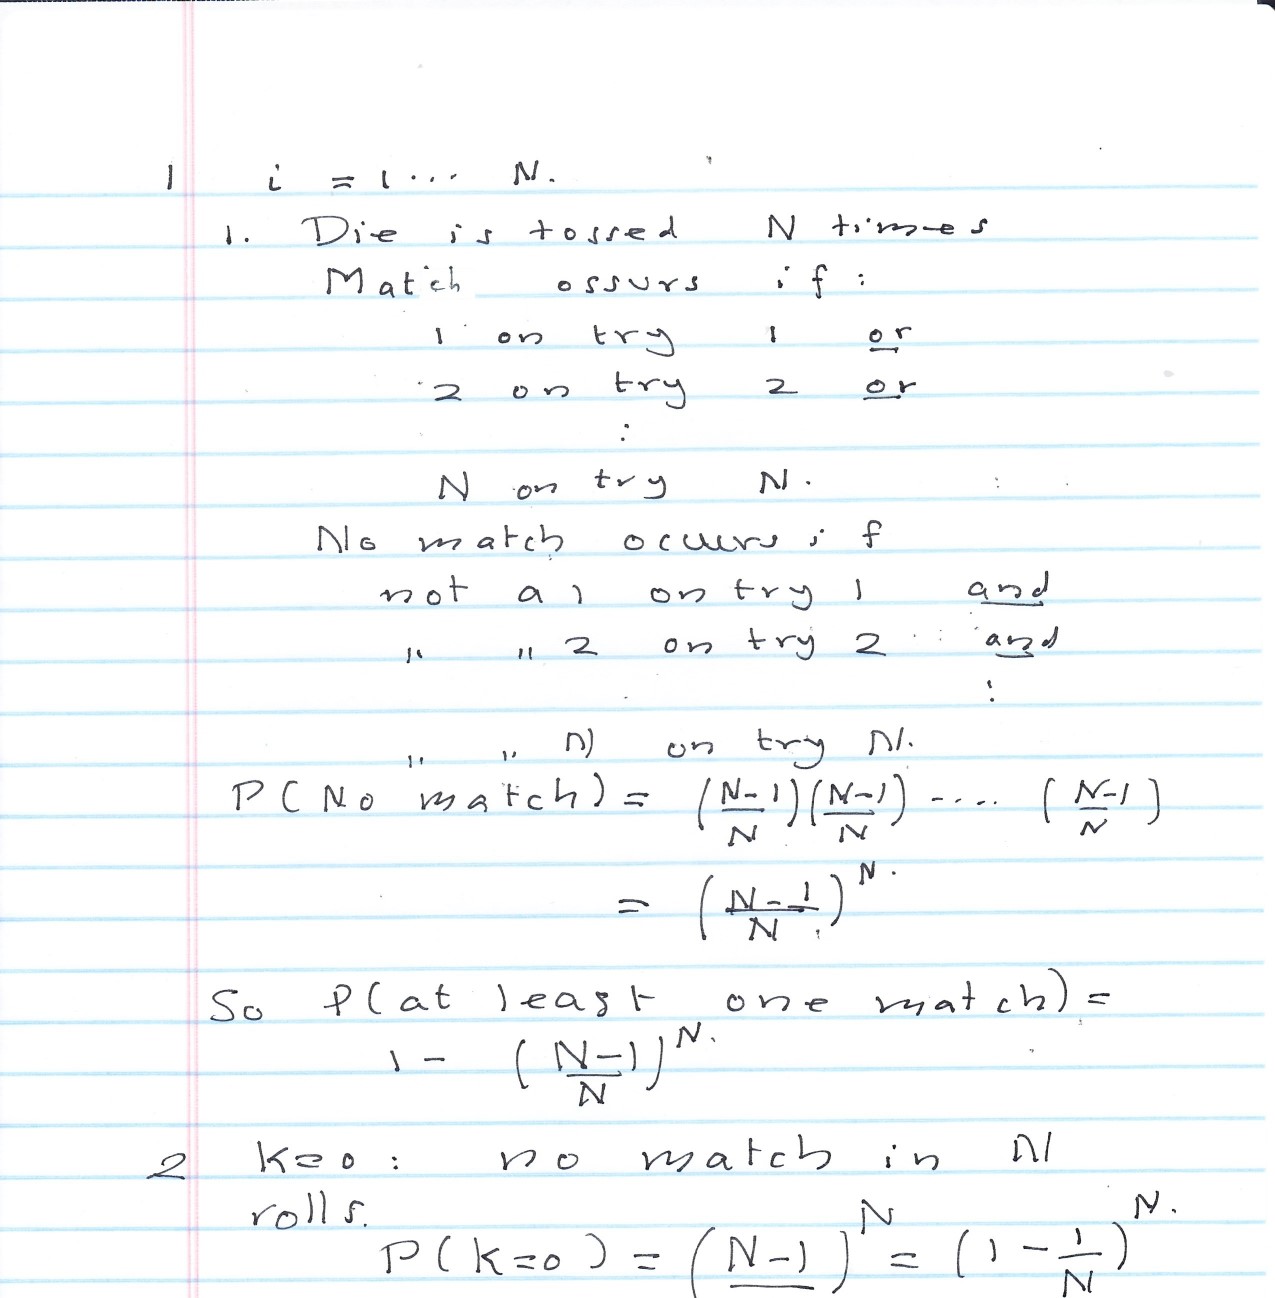 1 i = 1 ... N.
1. Die is tossed N times
Match ossurs if :
1 on try 1 or
2 on try 2 or
:
N on try N.
No match occurs if
not a 1 on try 1 and
" " 2 on try 2 and
:
" " N on try N.
P(No match) = ((N-1)/N)((N-1)/N) ---- ((N-1)/N)
= ((N-1)/N)^N.
So P(at least one match) =
1 - ((N-1)/N)^N.
2 k=0 : no match in N
rolls.
P(k=0) = (N-1)^N = (1 - 1/N)^N.